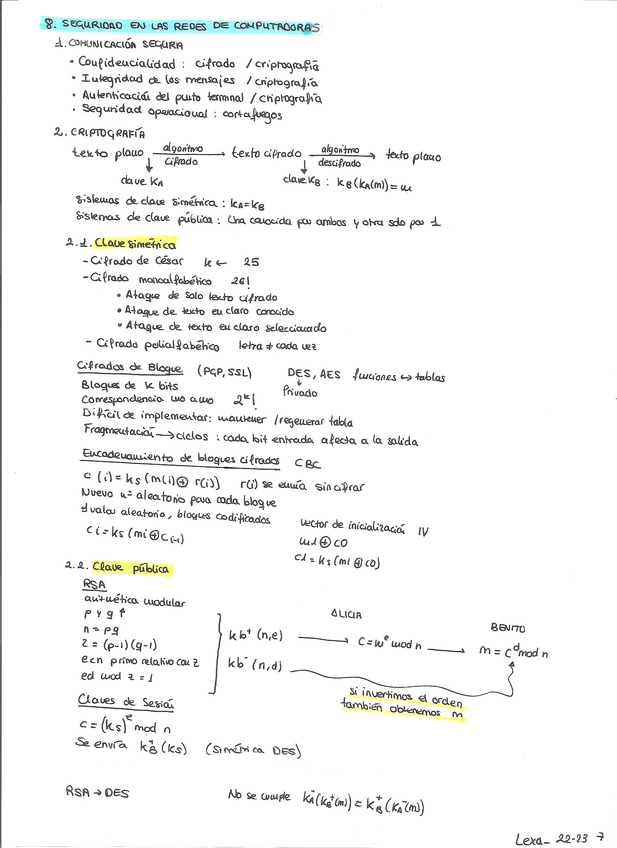 8. SEGURIDAD EN LAS REDES DE COMPUTADORAS
1. COMUNICACIÓN SEGURA
• Confidencialidad : cifrado / criptografía
• Integridad de los mensajes / criptografía
• Autenticación del punto terminal / criptografía
• Seguridad operacional : cortafuegos
2. CRIPTOGRAFÍA
texto plano algoritmo cifrado → texto cifrado algoritmo descifrado → texto plano
↓ clave KA ↓ clave KB : KB(KA(m)) = m
Sistemas de clave simétrica : KA = KB
Sistemas de clave pública : Una conocida por ambos y otra solo por 1
2.1. Clave simétrica
- Cifrado de César K ← 25
- Cifrado monoalfabético 26!
• Ataque de solo texto cifrado
• Ataque de texto en claro conocido
• Ataque de texto en claro seleccionado
- Cifrado polialfabético letra ≠ cada vez
Cifrados de Bloque (PGP, SSL) DES, AES funciones ↔ tablas
Bloques de K bits ↓ Privado
Correspondencia uno a uno 2^k!
Difícil de implementar: mantener / regenerar tabla
Fragmentación → ciclos : cada bit entrada afecta a la salida
Encadenamiento de bloques cifrados CBC
c(i) = ks(m(i) ⊕ r(i)) r(i) se envía sin cifrar
Nuevo nº aleatorio para cada bloque
1 valor aleatorio, bloques codificados vector de inicialización IV
ci = ks(mi ⊕ c(i-1)) m1 ⊕ c0
c1 = ks(m1 ⊕ c0)
2.2. Clave pública
RSA
aritmética modular
p y q ↑
n = pq
z = (p-1)(q-1)
e<n primo relativo con z
ed mod z = 1
ALICIA BENITO
kb⁺(n,e) → c = m^e mod n → m = c^d mod n
kb⁻(n,d)
si invertimos el orden
también obtenemos m
Claves de Sesión
c = (ks)^e mod n
Se envía k⁺B(ks) (Simétrica DES)
RSA → DES No se cumple KA⁻(KB⁺(m)) = KB⁺(KA⁻(m))
Lexa_ 22-23 7